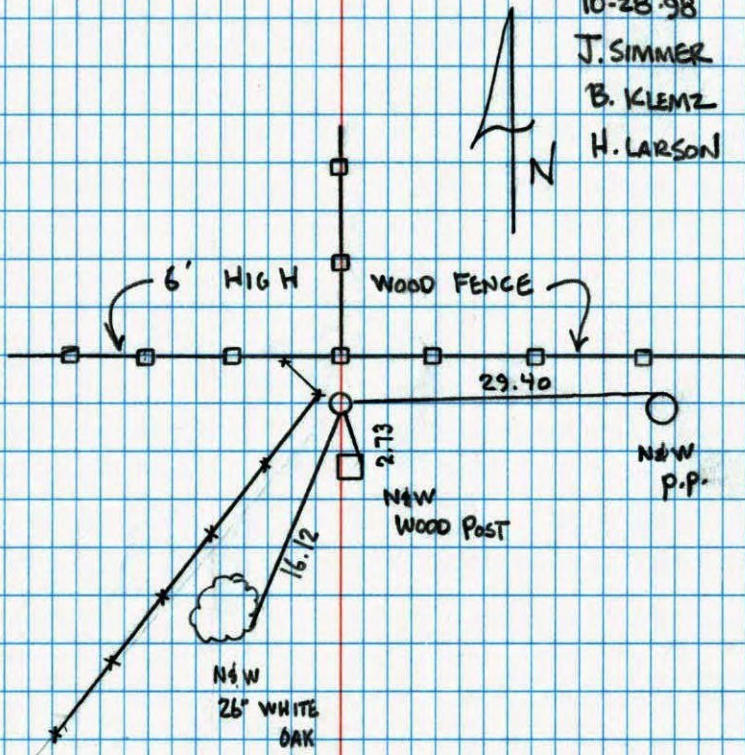 10-28-98
J. SIMMER
B. KLEMZ
H. LARSON
N
6' HIGH WOOD FENCE
29.40
2.73
N&W
P.P.
N&W
WOOD POST
16.12
N&W
26" WHITE
OAK